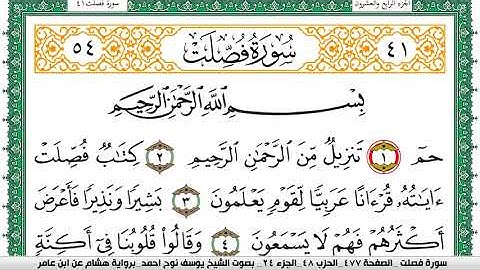 سورة فصلت ٤١
الجزء الرابع والعشرون
٤١
سُورَةُ فُصِّلَتْ
٥٤
بِسْمِ اللَّهِ الرَّحْمَٰنِ الرَّحِيمِ
حمٓ ١ تَنزِيلٌ مِّنَ الرَّحْمَٰنِ الرَّحِيمِ ٢ كِتَابٌ فُصِّلَتْ
ءَايَاتُهُۥ قُرْءَانًا عَرَبِيًّا لِّقَوْمٍ يَعْلَمُونَ ٣ بَشِيرًا وَنَذِيرًا فَأَعْرَضَ
أَكْثَرُهُمْ فَهُمْ لَا يَسْمَعُونَ ٤ وَقَالُوا قُلُوبُنَا فِي أَكِنَّةٍ
سورة فصلت _الصفحة ٤٧٧_ الحزب ٤٨_الجزء ٢٤_ بصوت الشيخ يوسف نوح احمد_برواية هشام عن ابن عامر